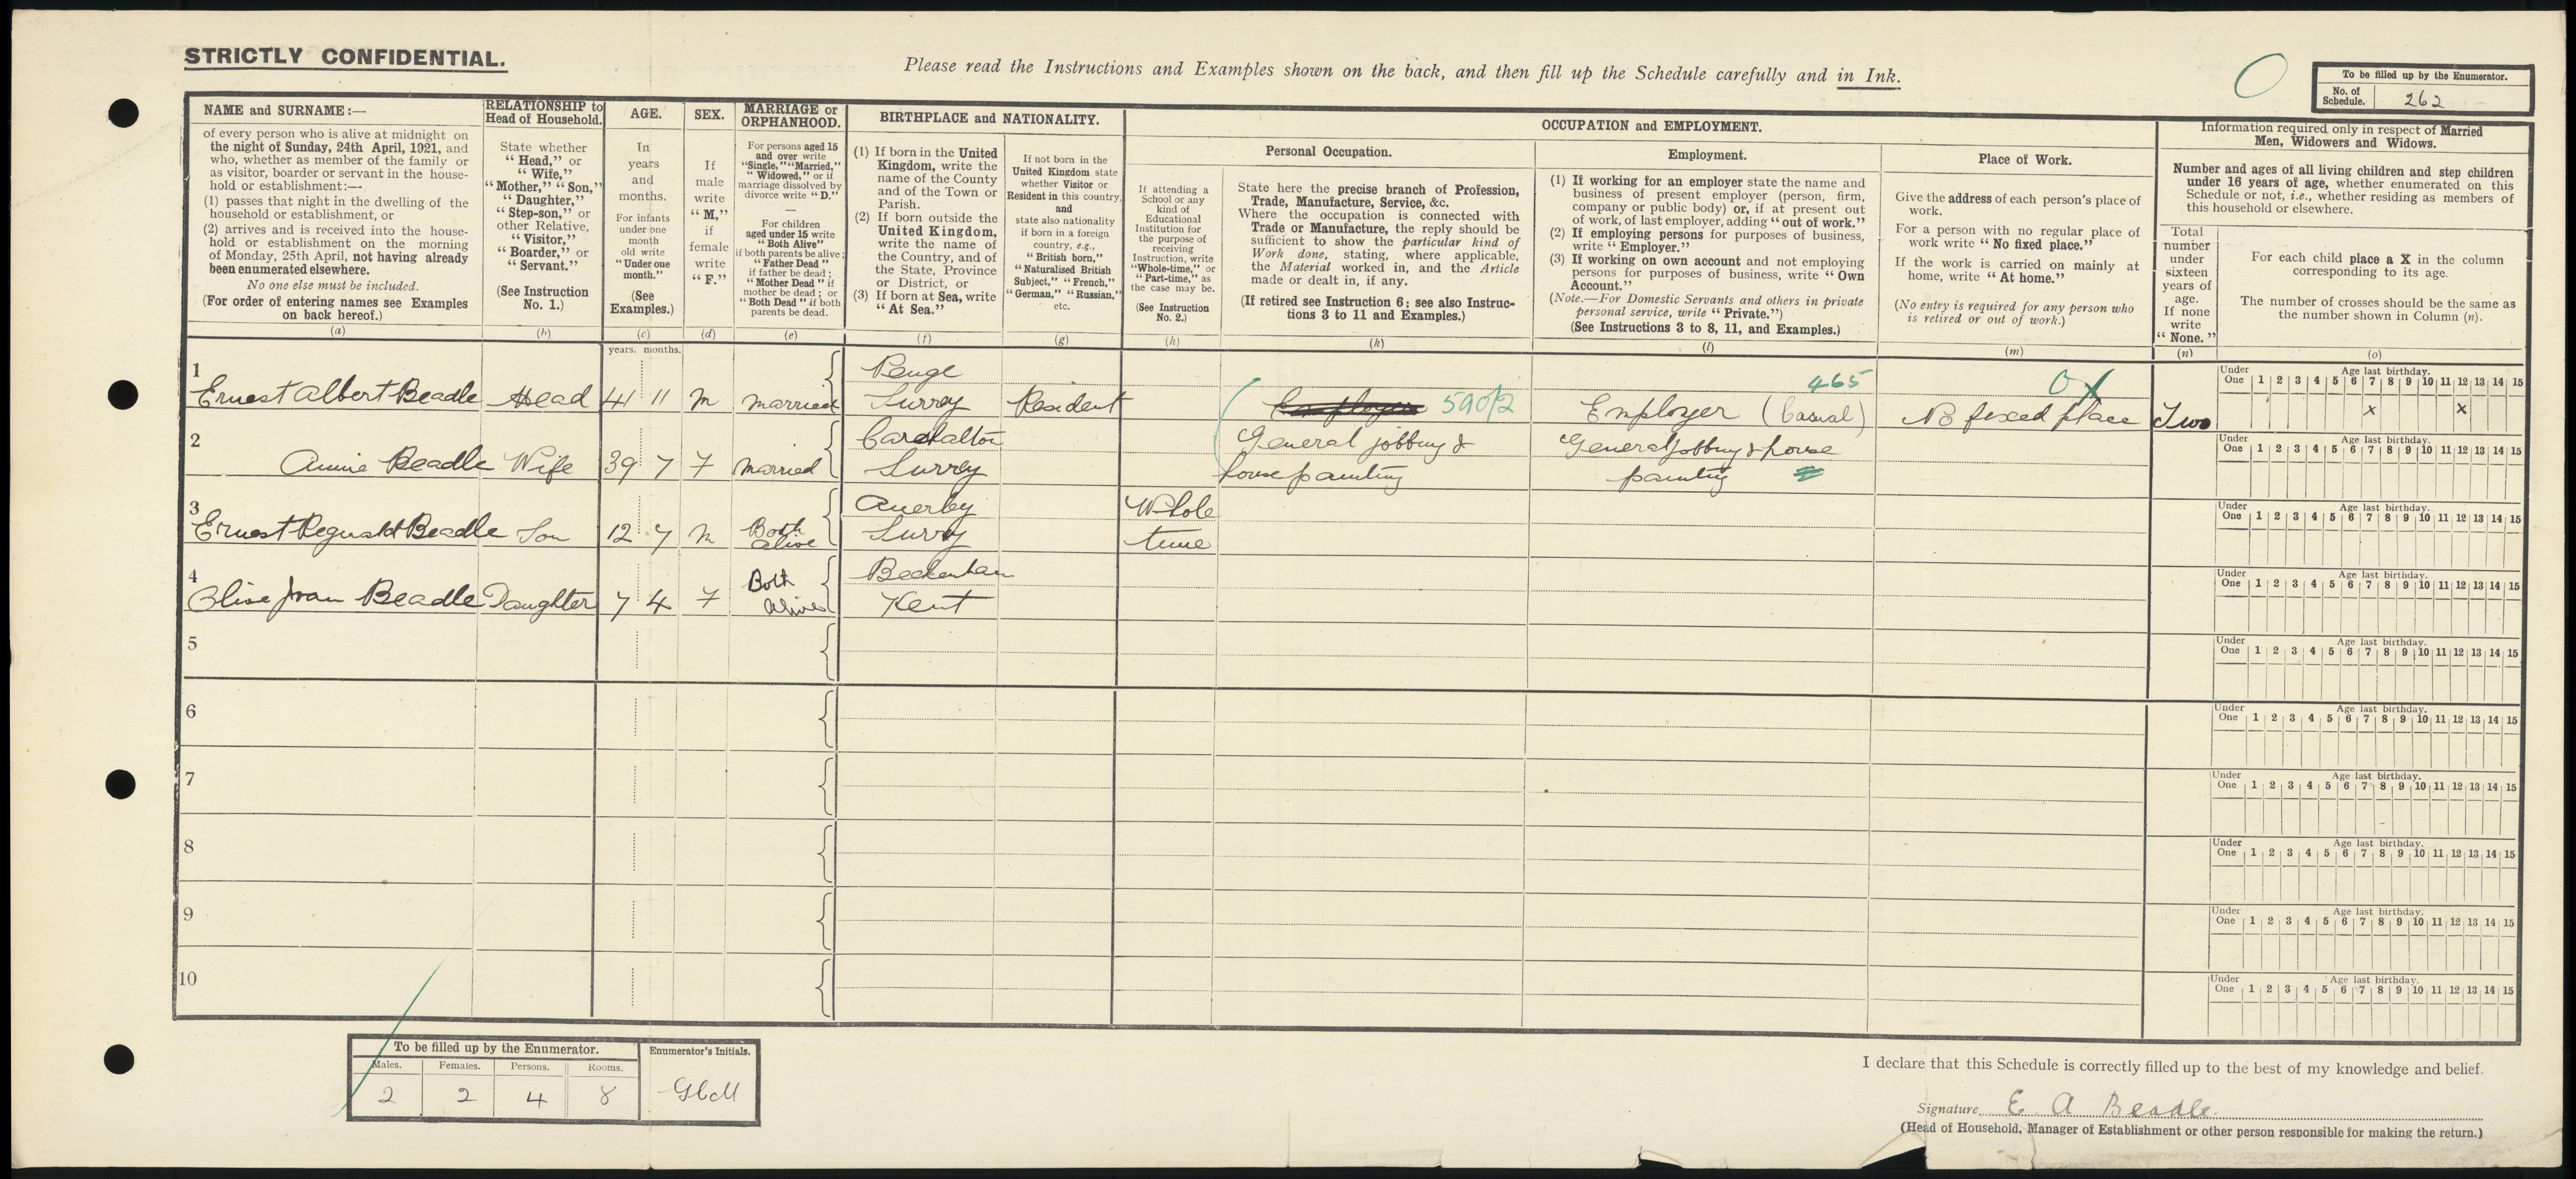 STRICTLY CONFIDENTIAL.
Please read the Instructions and Examples shown on the back, and then fill up the Schedule carefully and in Ink.
To be filled up by the Enumerator.
No. of Schedule. 262
NAME and SURNAME:—
of every person who is alive at midnight on
the night of Sunday, 24th April, 1921, and
who, whether as member of the family or
as visitor, boarder or servant in the house-
hold or establishment:—
(1) passes that night in the dwelling of the
household or establishment, or
(2) arrives and is received into the house-
hold or establishment on the morning
of Monday, 25th April, not having already
been enumerated elsewhere.
No one else must be included.
(For order of entering names see Examples
on back hereof.)
(a)
RELATIONSHIP to
Head of Household.
State whether
"Head," or
"Wife,"
"Mother," "Son,"
"Daughter,"
"Step-son," or
other Relative,
"Visitor,"
"Boarder," or
"Servant."
(See Instruction
No. 1.)
(b)
AGE.
In
years
and
months.
For infants
under one
month
old write
"Under one
month."
(See
Examples.)
(c)
SEX.
If
male
write
"M,"
if
female
write
"F."
(d)
MARRIAGE or
ORPHANHOOD.
For persons aged 15
and over write
"Single," "Married,"
"Widowed," or if
marriage dissolved by
divorce write "D."
—
For children
aged under 15 write
"Both Alive"
if both parents be alive;
"Father Dead"
if father be dead;
"Mother Dead" if
mother be dead; or
"Both Dead" if both
parents be dead.
(e)
BIRTHPLACE and NATIONALITY.
(1) If born in the United
Kingdom, write the
name of the County
and of the Town or
Parish.
(2) If born outside the
United Kingdom,
write the name of
the Country, and of
the State, Province
or District, or
(3) If born at Sea, write
"At Sea."
(f)
If not born in the
United Kingdom state
whether Visitor or
Resident in this country,
and
state also nationality
if born in a foreign
country, e.g.,
"British born,"
"Naturalised British
Subject," "French,"
"German," "Russian,"
etc.
(g)
OCCUPATION and EMPLOYMENT.
If attending a
School or any
kind of
Educational
Institution for
the purpose of
receiving
Instruction, write
"Whole-time," or
"Part-time," as
the case may be.
(See Instruction
No. 2.)
(h)
Personal Occupation.
State here the precise branch of Profession,
Trade, Manufacture, Service, &c.
Where the occupation is connected with
Trade or Manufacture, the reply should be
sufficient to show the particular kind of
Work done, stating, where applicable,
the Material worked in, and the Article
made or dealt in, if any.
(If retired see Instruction 6; see also Instruc-
tions 3 to 11 and Examples.)
(k)
Employment.
(1) If working for an employer state the name and
business of present employer (person, firm,
company or public body) or, if at present out
of work, of last employer, adding "out of work."
(2) If employing persons for purposes of business,
write "Employer."
(3) If working on own account and not employing
persons for purposes of business, write "Own
Account."
(Note.—For Domestic Servants and others in private
personal service, write "Private.")
(See Instructions 3 to 8, 11, and Examples.)
(l)
Place of Work.
Give the address of each person's place of
work.
For a person with no regular place of
work write "No fixed place."
If the work is carried on mainly at
home, write "At home."
(No entry is required for any person who
is retired or out of work.)
(m)
Information required only in respect of Married
Men, Widowers and Widows.
Number and ages of all living children and step children
under 16 years of age, whether enumerated on this
Schedule or not, i.e., whether residing as members of
this household or elsewhere.
Total
number
under
sixteen
years of
age.
If none
write
"None."
(n)
For each child place a X in the column
corresponding to its age.
The number of crosses should be the same as
the number shown in Column (n).
(o)
years. months.
1
Ernest Albert Beadle Head 41 11 M Married Penge
Surrey Resident Employer 590/2 465 Employer (Casual) No fixed place Two
Under One Age last birthday. 1 2 3 4 5 6 7 8 9 10 11 12 13 14 15
x x
General jobbing &
house painting
General jobbing & house
painting
2
Annie Beadle Wife 39 7 F Married Carshalton
Surrey
Under One Age last birthday. 1 2 3 4 5 6 7 8 9 10 11 12 13 14 15
3
Ernest Reginald Beadle Son 12 7 M Both alive Anerley
Surrey Whole time
Under One Age last birthday. 1 2 3 4 5 6 7 8 9 10 11 12 13 14 15
4
Olive Joan Beadle Daughter 7 4 F Both Alive Beckenham
Kent
Under One Age last birthday. 1 2 3 4 5 6 7 8 9 10 11 12 13 14 15
5
Under One Age last birthday. 1 2 3 4 5 6 7 8 9 10 11 12 13 14 15
6
Under One Age last birthday. 1 2 3 4 5 6 7 8 9 10 11 12 13 14 15
7
Under One Age last birthday. 1 2 3 4 5 6 7 8 9 10 11 12 13 14 15
8
Under One Age last birthday. 1 2 3 4 5 6 7 8 9 10 11 12 13 14 15
9
Under One Age last birthday. 1 2 3 4 5 6 7 8 9 10 11 12 13 14 15
10
Under One Age last birthday. 1 2 3 4 5 6 7 8 9 10 11 12 13 14 15
To be filled up by the Enumerator.
Males. Females. Persons. Rooms.
2 2 4 8
Enumerator's Initials.
I declare that this Schedule is correctly filled up to the best of my knowledge and belief.
Signature E A Beadle.
(Head of Household, Manager of Establishment or other person responsible for making the return.)